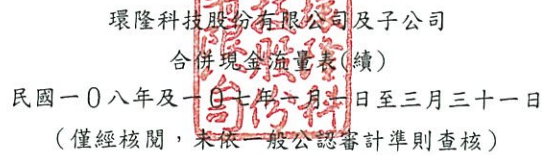 環隆科技股份有限公司及子公司
合併現金流量表(續)
民國一０八年及一０七年一月一日至三月三十一日
(僅經核閱，未依一般公認審計準則查核)